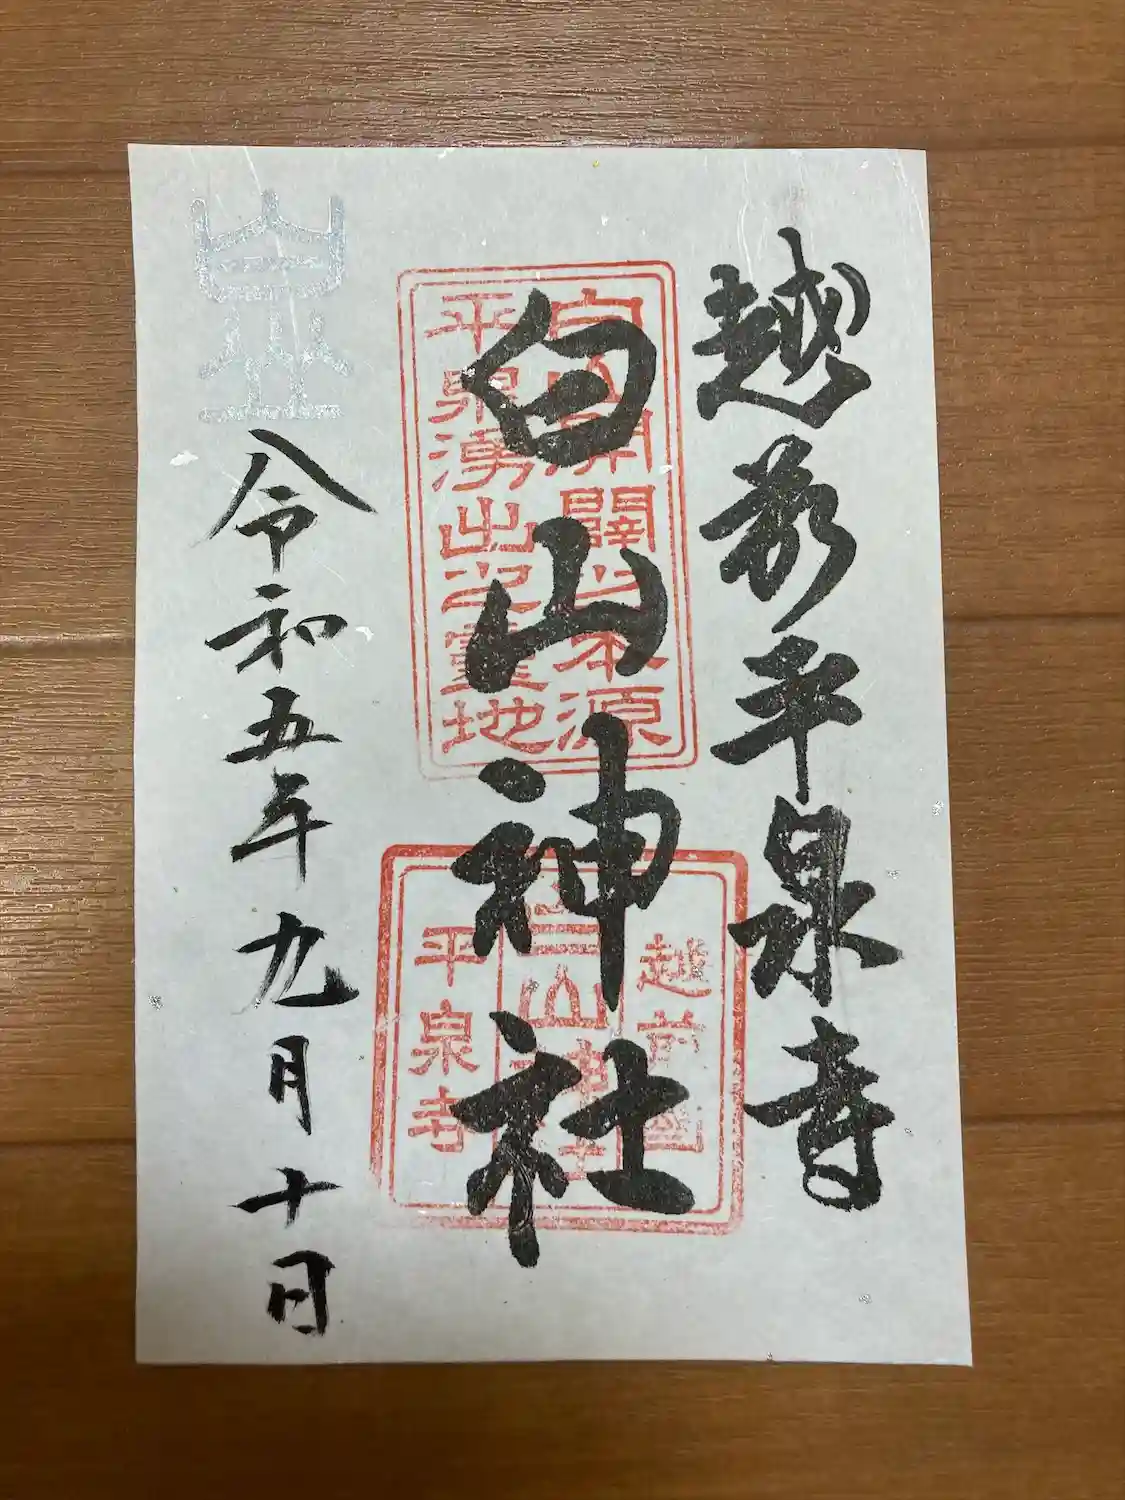 越前平泉寺
白山開闢之本源
平泉湧出之靈地
白山神社
越前國
白山神社
平泉寺
令和五年九月十日